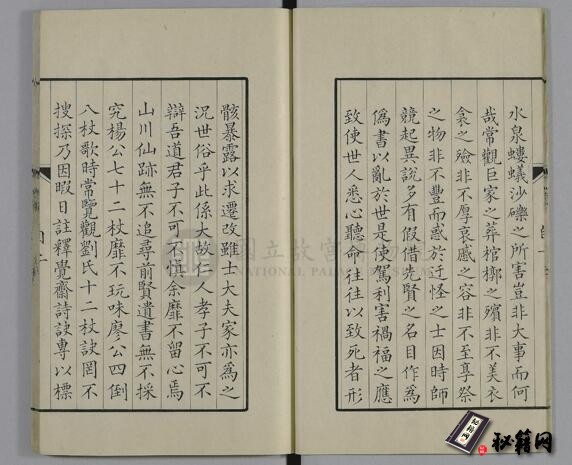 水泉螻蟻沙礫之所害豈非大事而何
哉常觀巨家之葬棺槨之殯非不美衣
衾之殮非不厚哀慼之容非不至享祭
之物非不豐而惑於迂怪之士因時師
競起異說多有假借先賢之名目作為
僞書以亂於世是使駕利害禍福之應
致使世人悉心聽命往往以致死者形
骸暴露以求遷改雖士大夫家亦為之
況世俗乎此係大故仁人孝子不可不
辯吾道君子不可不慎余靡不留心焉
山川仙跡無不追尋前賢遺書無不採
究楊公七十二杖靡不玩味廖公四倒
八杖歌時常覽觀劉氏十二杖訣罔不
搜探乃因暇日註釋覺齋詩訣專以標
國立故宮
NATIONAL PALACE MUSEUM
秘籍网